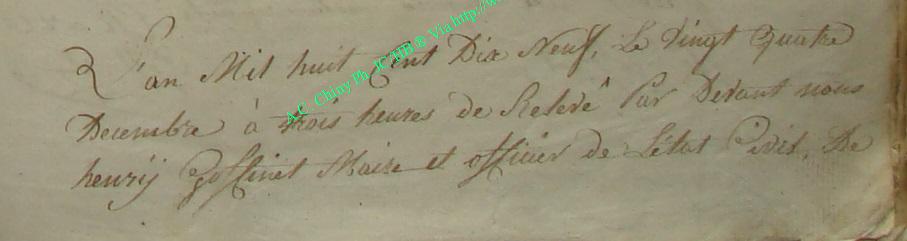 L'an Mil huit Cent Dix Neuf, Le Vingt Quatre
Decembre à trois heures de Relevé Par Devant nous
henrÿ Goffinet Maire et officier de L'état Civil, De
A.C. Chiny Ph. JC/HH ® Via http://w